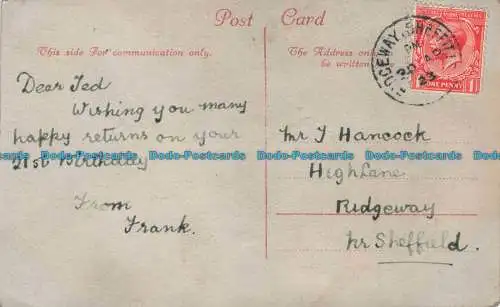 Post Card
This side For communication only.
The Address on
be written
Dear Ted
Wishing you many
happy returns on your
21st Birthday
From
Frank.
Mr T Hancock
High Lane
Ridgeway
Nr Sheffield.
RIDGEWAY SHEFFIELD
23
ONE PENNY
Dodo-Postcards Dodo-Postcards Dodo-Postcards Dodo-Postcards